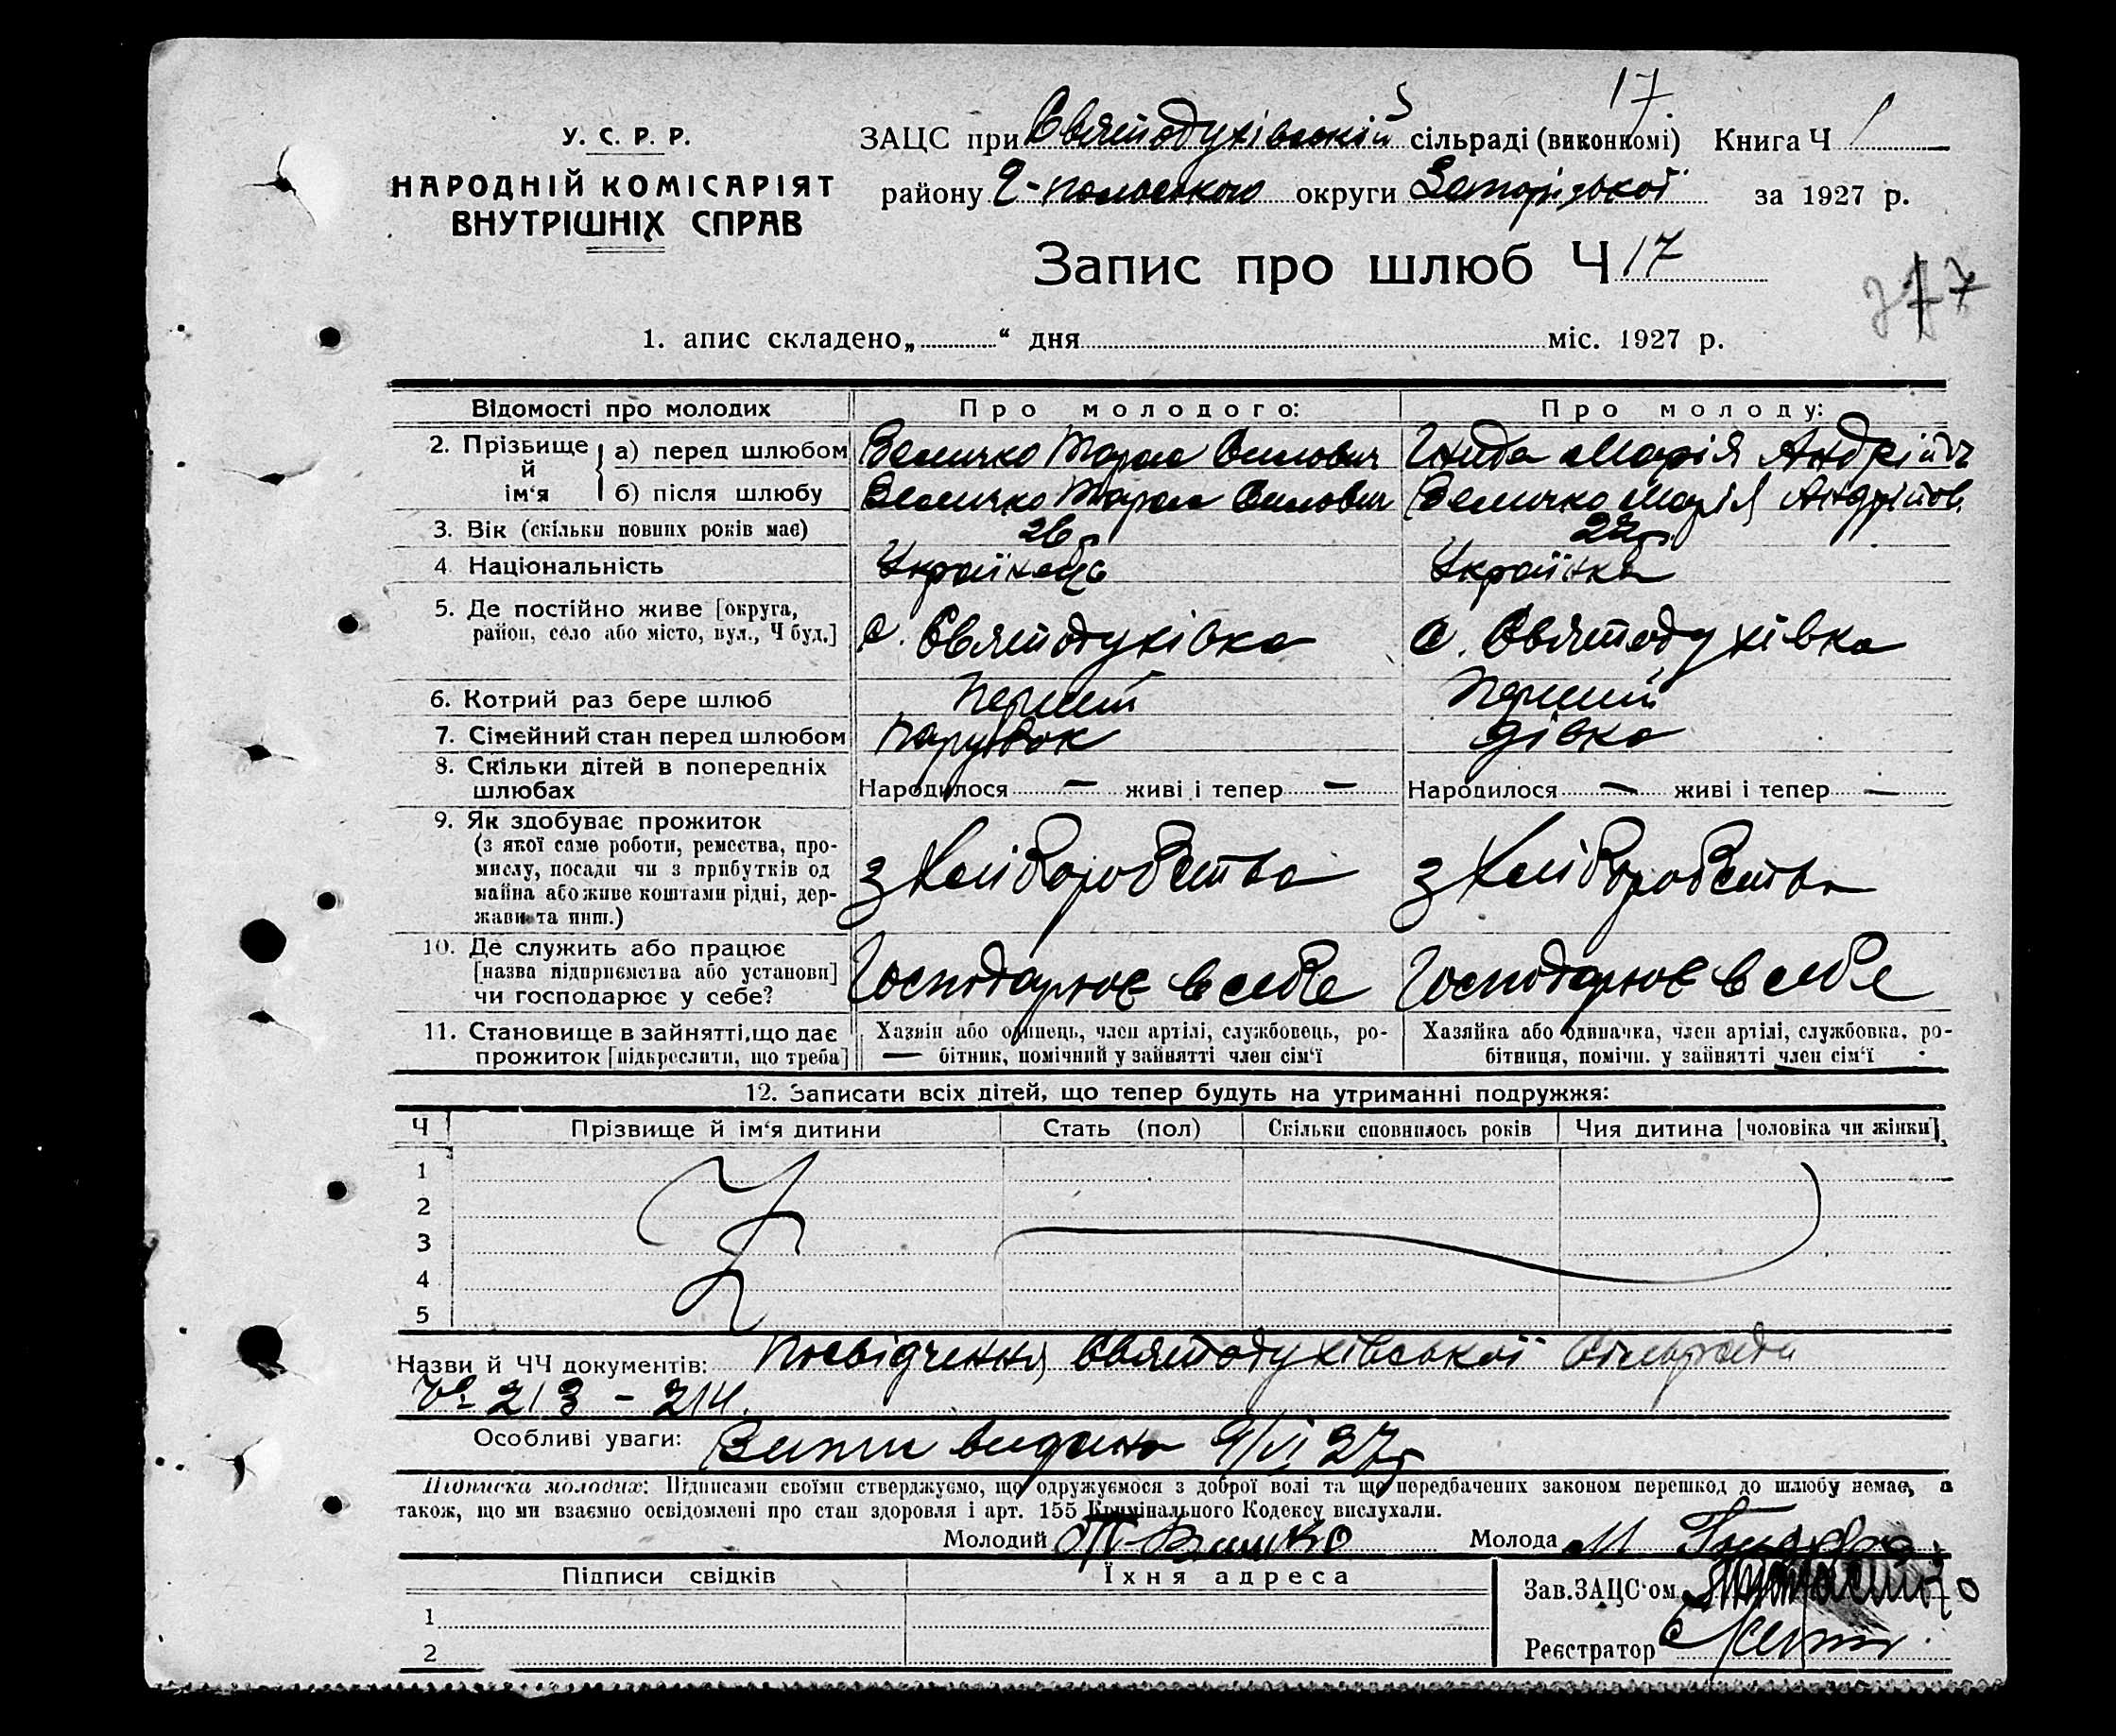 17
У. С. Р. Р.
НАРОДНІЙ КОМІСАРІЯТ
ВНУТРІШНІХ СПРАВ
ЗАЦС при Святодухівській сільраді (виконкомі) Книга Ч 1
району округи Запорізької за 1927 р.
Запис про шлюб Ч 17
1. апис складено „ “ дня міс. 1927 р.
Відомості про молодих Про молодого: Про молоду:
2. Прізвище й ім‘я
а) перед шлюбом Величко Тарас Андрій
б) після шлюбу Величко Тарас Величко Марія Андрійов.
3. Вік (скільки повних років має) 26 22
4. Національність Українець Українка
5. Де постійно живе [округа, район, село або місто, вул., Ч буд.] с. Святодухівка с. Святодухівка
6. Котрий раз бере шлюб перший перший
7. Сімейний стан перед шлюбом парубок дівка
8. Скільки дітей в попередніх шлюбах Народилося — живі і тепер — Народилося — живі і тепер —
9. Як здобуває прожиток
(з якої саме роботи, ремества, про-
мислу, посади чи з прибутків од
майна або живе коштами рідні, дер-
жави та инш.)
з Хліборобства з Хліборобства
10. Де служить або працює
[назва підприємства або установи]
чи господарює у себе?
Господарює в себе Господарює в себе
11. Становище в зайнятті, що дає
прожиток [підкреслити, що треба]
Хазяїн або одинець, член артілі, службовець, ро-
бітник, помічний у зайнятті член сім‘ї
Хазяйка або одиначка, член артілі, службовка, ро-
бітниця, помічн. у зайнятті член сім‘ї
12. Записати всіх дітей, що тепер будуть на утриманні подружжя:
Ч Прізвище й ім‘я дитини Стать (пол) Скільки сповнилось років Чия дитина [чоловіка чи жінки]
1
2
3
4
5
Назви й ЧЧ документів: Посвідчення Святодухівської Сільради
№ 213 - 214.
Особливі уваги: видано 9/VI 27
Підписка молодих: Підписами своїми стверджуємо, що одружуємося з доброї волі та що передбачених законом перешкод до шлюбу немає, а
також, що ми взаємно освідомлені про стан здоровля і арт. 155 Кримінального Кодексу вислухали.
Молодий Молода М
Підписи свідків Їхня адреса
Зав. ЗАЦС‘ом
1
2
Реєстратор